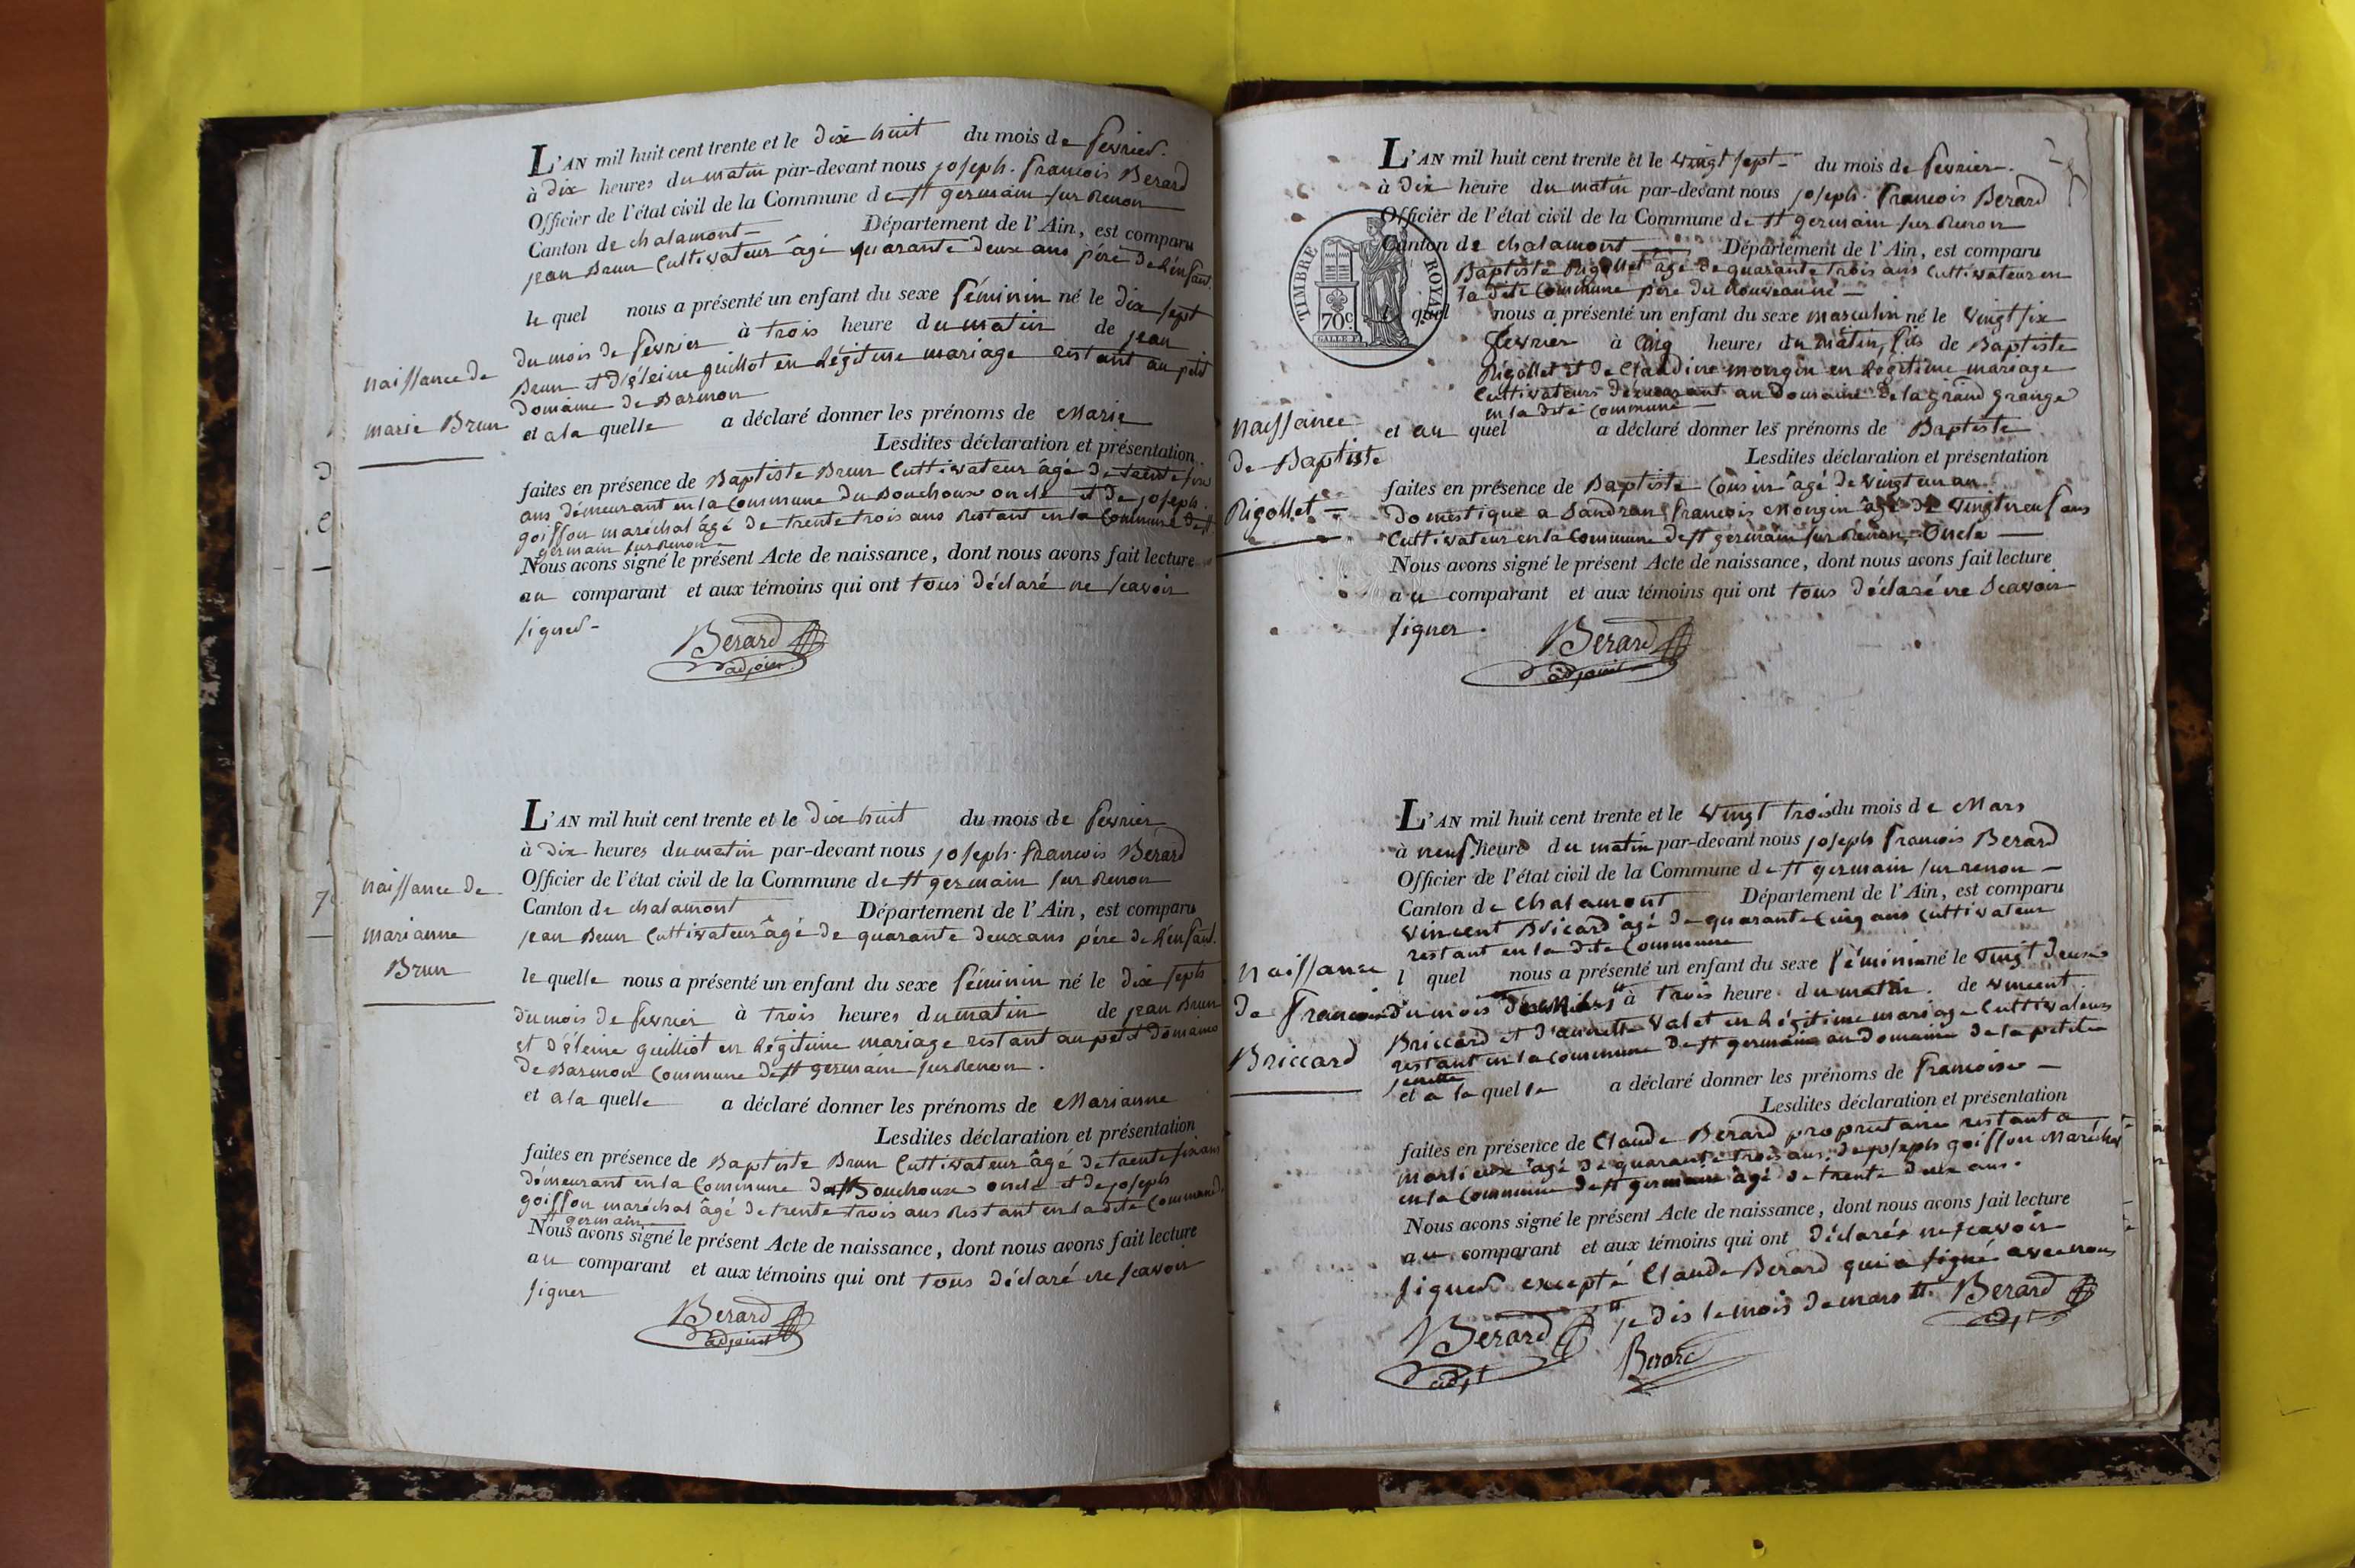 L'AN mil huit cent trente et le dix huit du mois de fevrier.
à dix heures du matin par-devant nous joseph. francois Berard
Officier de l'état civil de la Commune de st germain sur Renon
Canton de chalamont Département de l'Ain, est comparu
jean Brun Cultivateur âgé quarante deux ans père de l'enfant.
le quel nous a présenté un enfant du sexe féminin né le dix sept
du mois de fevrier à trois heure du matin de jean
Brun et d'éleine guillot en légitime mariage restant au petit
domaine de Barmon
et a la quelle a déclaré donner les prénoms de Marie
Lesdites déclaration et présentation
faites en présence de Baptiste Brun Cultivateur âgé de trente six
ans démeurant en la Commune du Bouchoux oncle et de joseph.
goiffon maréchal âgé de trente trois ans Restant en la Commune de st
germain sur Renon
Nous avons signé le présent Acte de naissance, dont nous avons fait lecture
au comparant et aux témoins qui ont tous déclaré ne scavoir
signer
Berard
adjoint
naissance de
marie Brun
L'AN mil huit cent trente et le dix huit du mois de fevrier
à dix heures du matin par-devant nous joseph. francois Berard
Officier de l'état civil de la Commune de st germain sur Renon
Canton de chalamont Département de l'Ain, est comparu
jean Brun Cultivateur âgé de quarante deux ans père de l'enfant.
le quelle nous a présenté un enfant du sexe féminin né le dix sept
du mois de fevrier à trois heures du matin de jean Brun
et d'éleine guilliot en légitime mariage restant au petit domaine
de Barmon Commune de st germain sur Renon.
et a la quelle a déclaré donner les prénoms de Marianne
Lesdites déclaration et présentation
faites en présence de Baptiste Brun Cultivateur âgé de trente six ans
démeurant en la Commune de Bouchoux oncle et de joseph
goiffon maréchal âgé de trente trois ans Restant en la dite Commune de
st germain
Nous avons signé le présent Acte de naissance, dont nous avons fait lecture
au comparant et aux témoins qui ont tous déclaré ne scavoir
signer
Berard
adjoint
naissance de
marianne
Brun
L'AN mil huit cent trente et le vingt sept du mois de fevrier.
à dix heure du matin par-devant nous joseph. francois Berard
Officier de l'état civil de la Commune de st germain sur Renon
Canton de chalamont Département de l'Ain, est comparu
Baptiste Rigollet âgé de quarante trois ans Cultivateur en
la dite Commune père du nouveau né
l quel nous a présenté un enfant du sexe masculin né le vingt six
fevrier à cinq heures du matin, fils de Baptiste
Rigollet et de Claudine mongin en légitime mariage
Cultivateurs démeurant au Domaine de la grand grange
en la dite commune
et au quel a déclaré donner les prénoms de Baptiste
Lesdites déclaration et présentation
faites en présence de Baptiste Cousin âgé de vingt un an
domestique a Sandran francois Mongin âgé de vingt neuf ans
Cultivateur en la Commune de st germain sur Renon, Oncle
Nous avons signé le présent Acte de naissance, dont nous avons fait lecture
au comparant et aux témoins qui ont tous déclaré ne Scavoir
signer.
Berard
adjoint
TIMBRE ROYAL
70c
naissance
de Baptiste
Rigollet
L'AN mil huit cent trente et le vingt trois du mois de Mars
à neuf heure du matin par-devant nous joseph francois Berard
Officier de l'état civil de la Commune de st germain sur renon
Canton de Chalamont Département de l'Ain, est comparu
vincent Bricard âgé de quarante Cinq ans Cultivateur
restant en la dite Commune
l quel nous a présenté un enfant du sexe féminin né le vingt deux
du mois à trois heure du matin. de vincent
Briccard et d'annette Valet en légitime mariage Cultivateurs
restant en la commune de st germain au domaine de la petite
et a la quelle a déclaré donner les prénoms de francoise
Lesdites déclaration et présentation
faites en présence de Claude Berard propriétaire restant a
marlieux âgé de quarante trois ans, de joseph goiffon Maréchal
en la Commune de st germain âgé de trente deux ans.
Nous avons signé le présent Acte de naissance, dont nous avons fait lecture
au comparant et aux témoins qui ont déclarés ne scavoir
signer excepté Claude Berard qui a signé avec nous
je dis le mois de mars Berard
adjt
Berard
adjt
Berard
naissance
de francoise
Briccard